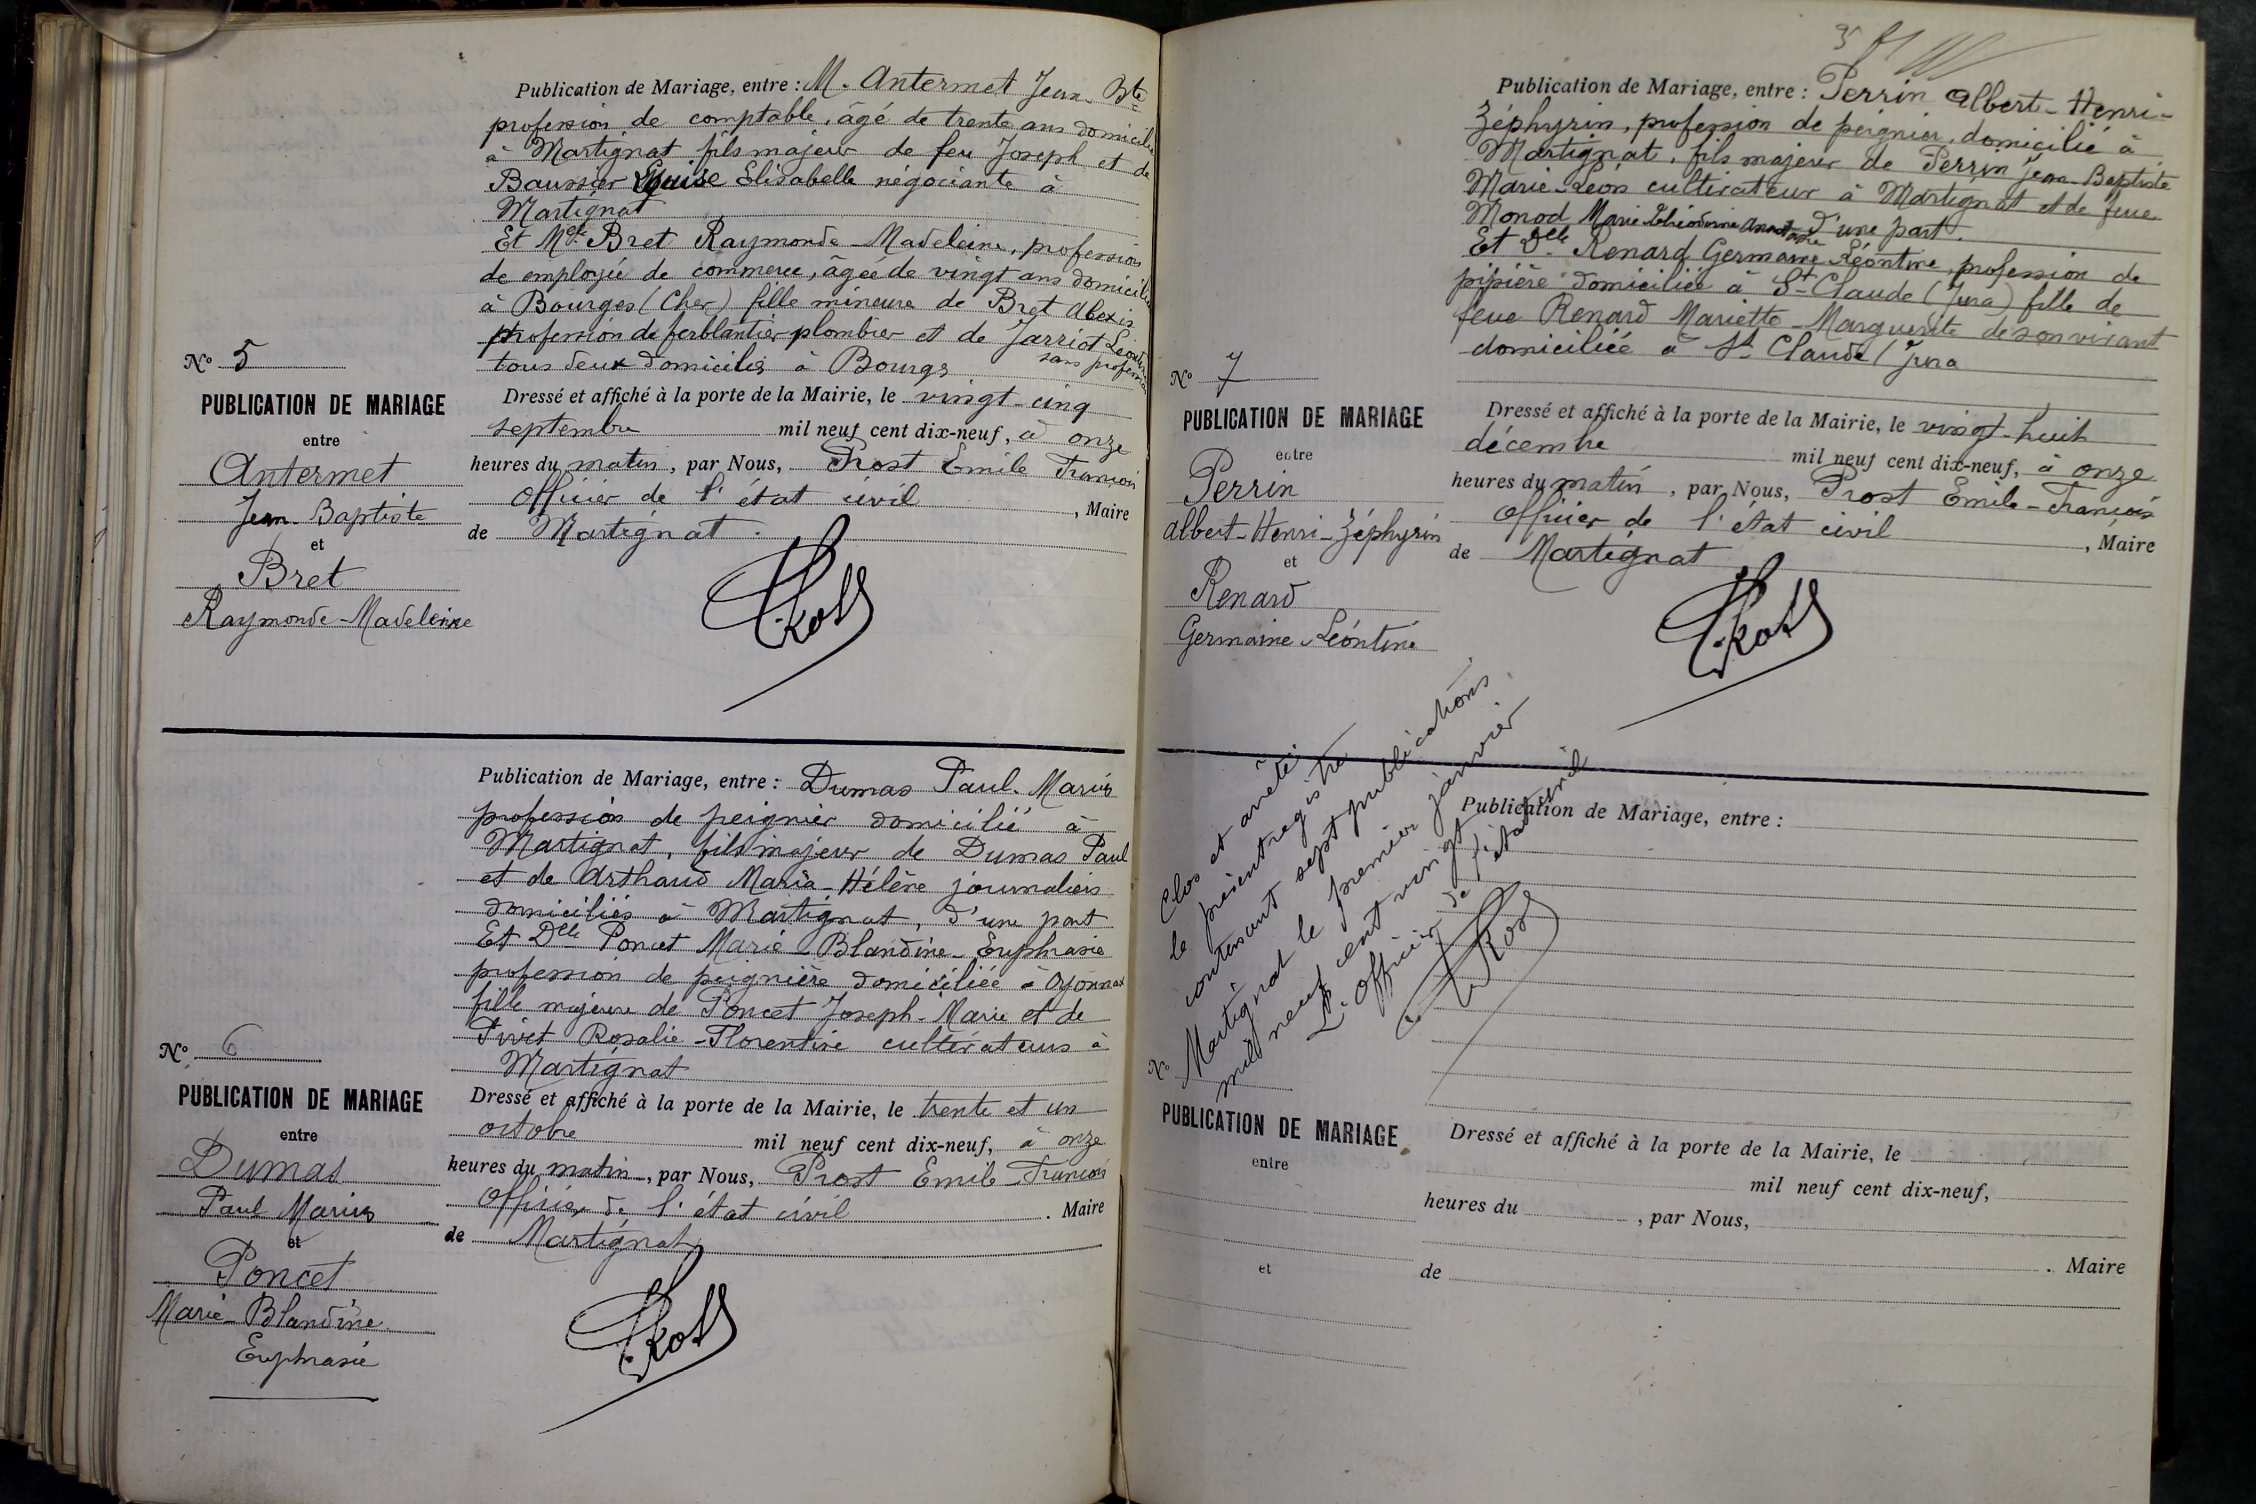 Publication de Mariage, entre : M. Antermet Jean-Bte
profession de comptable, âgé de trente ans domicilié
à Martignat fils majeur de feu Joseph et de
Baussier Louise Elisabelle négociante à
Martignat
Et Melle Bret Raymonde-Madeleine, profession
de employée de commerce, âgée de vingt ans domicilié
à Bourges (Cher) fille mineure de Bret Alexis
profession de ferblantier plombier et de Jarriot
sans profession
tous deux domiciliés à Bourgs
Dressé et affiché à la porte de la Mairie, le vingt-cinq
septembre mil neuf cent dix-neuf, à onze
heures du matin, par Nous, Prost Emile François
Officier de l'état civil , Maire
de Martignat.
Prost
No 5
PUBLICATION DE MARIAGE
entre
Antermet
Jean-Baptiste
et
Bret
Raymonde-Madeleine
Publication de Mariage, entre : Dumas Paul-Marius
profession de peignier domicilié à
Martignat, fils majeur de Dumas Paul
et de Arthaud Maria-Hélène journaliers
domiciliés à Martignat, d'une part
Et Delle Poncet Marie-Blandine-Euphrasie
profession de peignière domiciliée à Oyonnax
fille majeure de Poncet Joseph-Marie et de
Pivet Rosalie-Florentine cultivateurs à
Martignat
Dressé et affiché à la porte de la Mairie, le trente et un
octobre mil neuf cent dix-neuf, à onze
heures du matin, par Nous, Prost Emile-François
Officier de l'état civil . Maire
de Martignat
Prost
No 6
PUBLICATION DE MARIAGE
entre
Dumas
Paul Marius
et
Poncet
Marie-Blandine
Euphrasie
35
Publication de Mariage, entre : Perrin Albert-Henri-
Zéphyrin, profession de peignier, domicilié à
Martignat, fils majeur de Perrin Jean-Baptiste
Marie-Léon cultivateur à Martignat et de feue
Monod Marie d'une part.
Et Delle Renard Germaine Léontine, profession de
pipière domiciliée à St-Claude (Jura) fille de
feue Renard Mariette-Marguerite de son vivant
domiciliée à St Claude (Jura
Dressé et affiché à la porte de la Mairie, le vingt-huit
décembre mil neuf cent dix-neuf, à onze
heures du matin, par Nous, Prost Emile-François
Officier de l'état civil , Maire
de Martignat
Prost
No 7
PUBLICATION DE MARIAGE
entre
Perrin
Albert-Henri-Zéphyrin
et
Renard
Germaine-Léontine
Clos et arrêté
le présent registre
contenant sept publications
Martignat le premier janvier
mil neuf cent vingt
L'Officier de l'état civil
Prost
Publication de Mariage, entre :
Dressé et affiché à la porte de la Mairie, le
mil neuf cent dix-neuf,
heures du , par Nous,
. Maire
de
No
PUBLICATION DE MARIAGE
entre
et